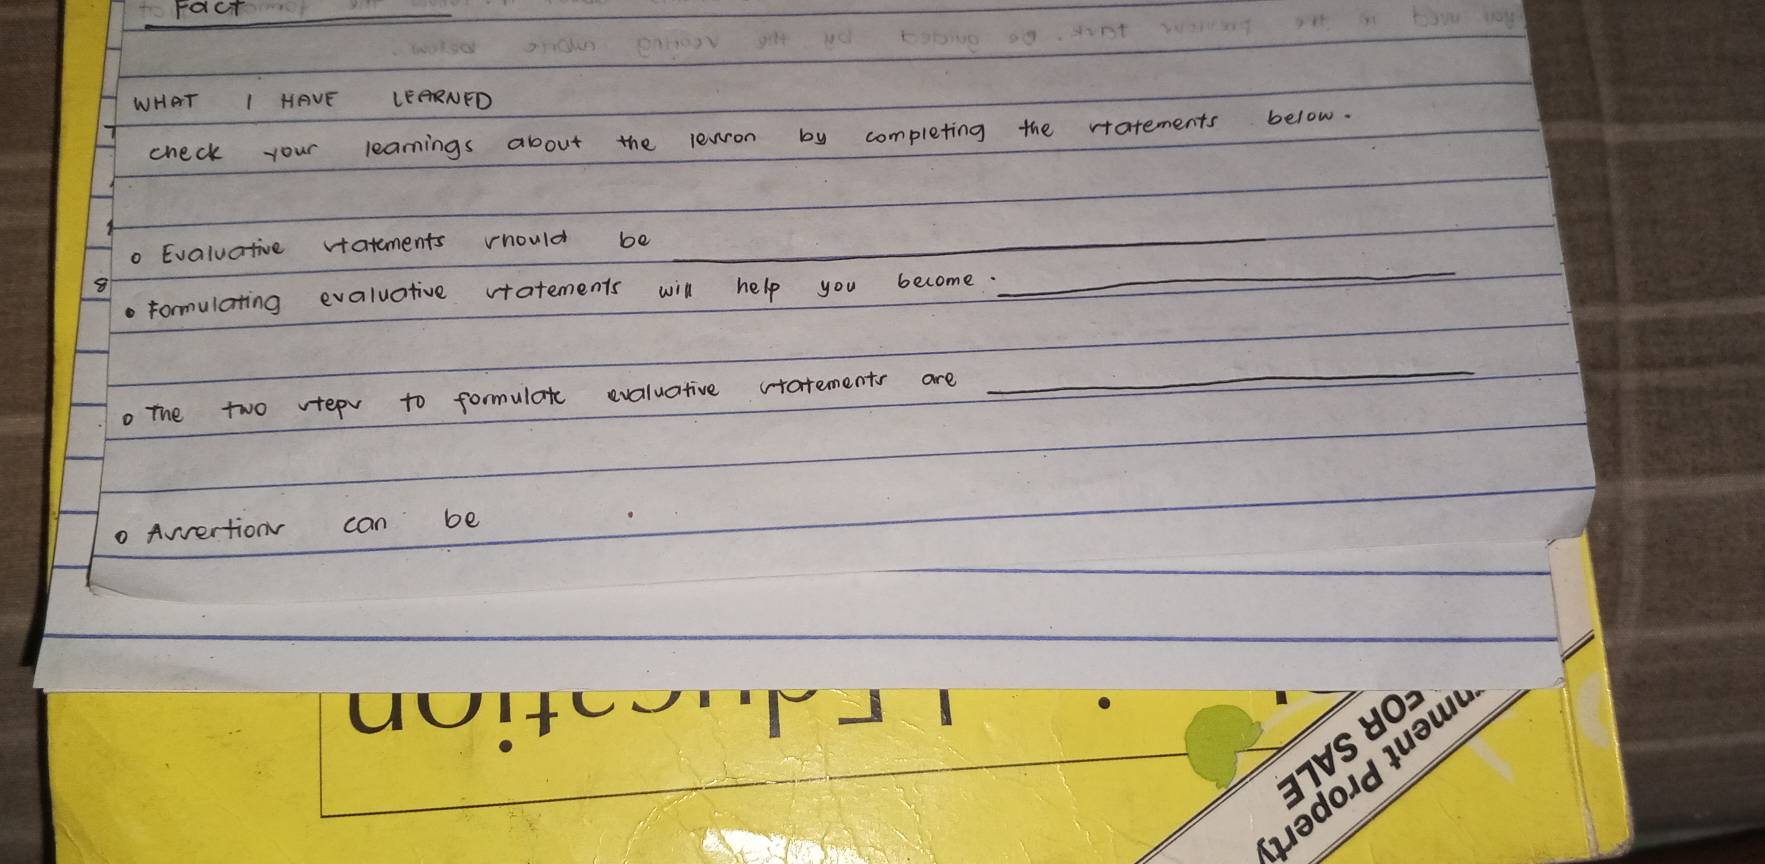 Fact
WHAT I HAVE LEARNED
check your learnings about the lesson by completing the statements below.
o Evaluative statements should be
8
• Formulating evaluative statements will help you become.
o The two steps to formulate evaluative statements are
o Assertions can be
Education
nment Property
FOR SALE